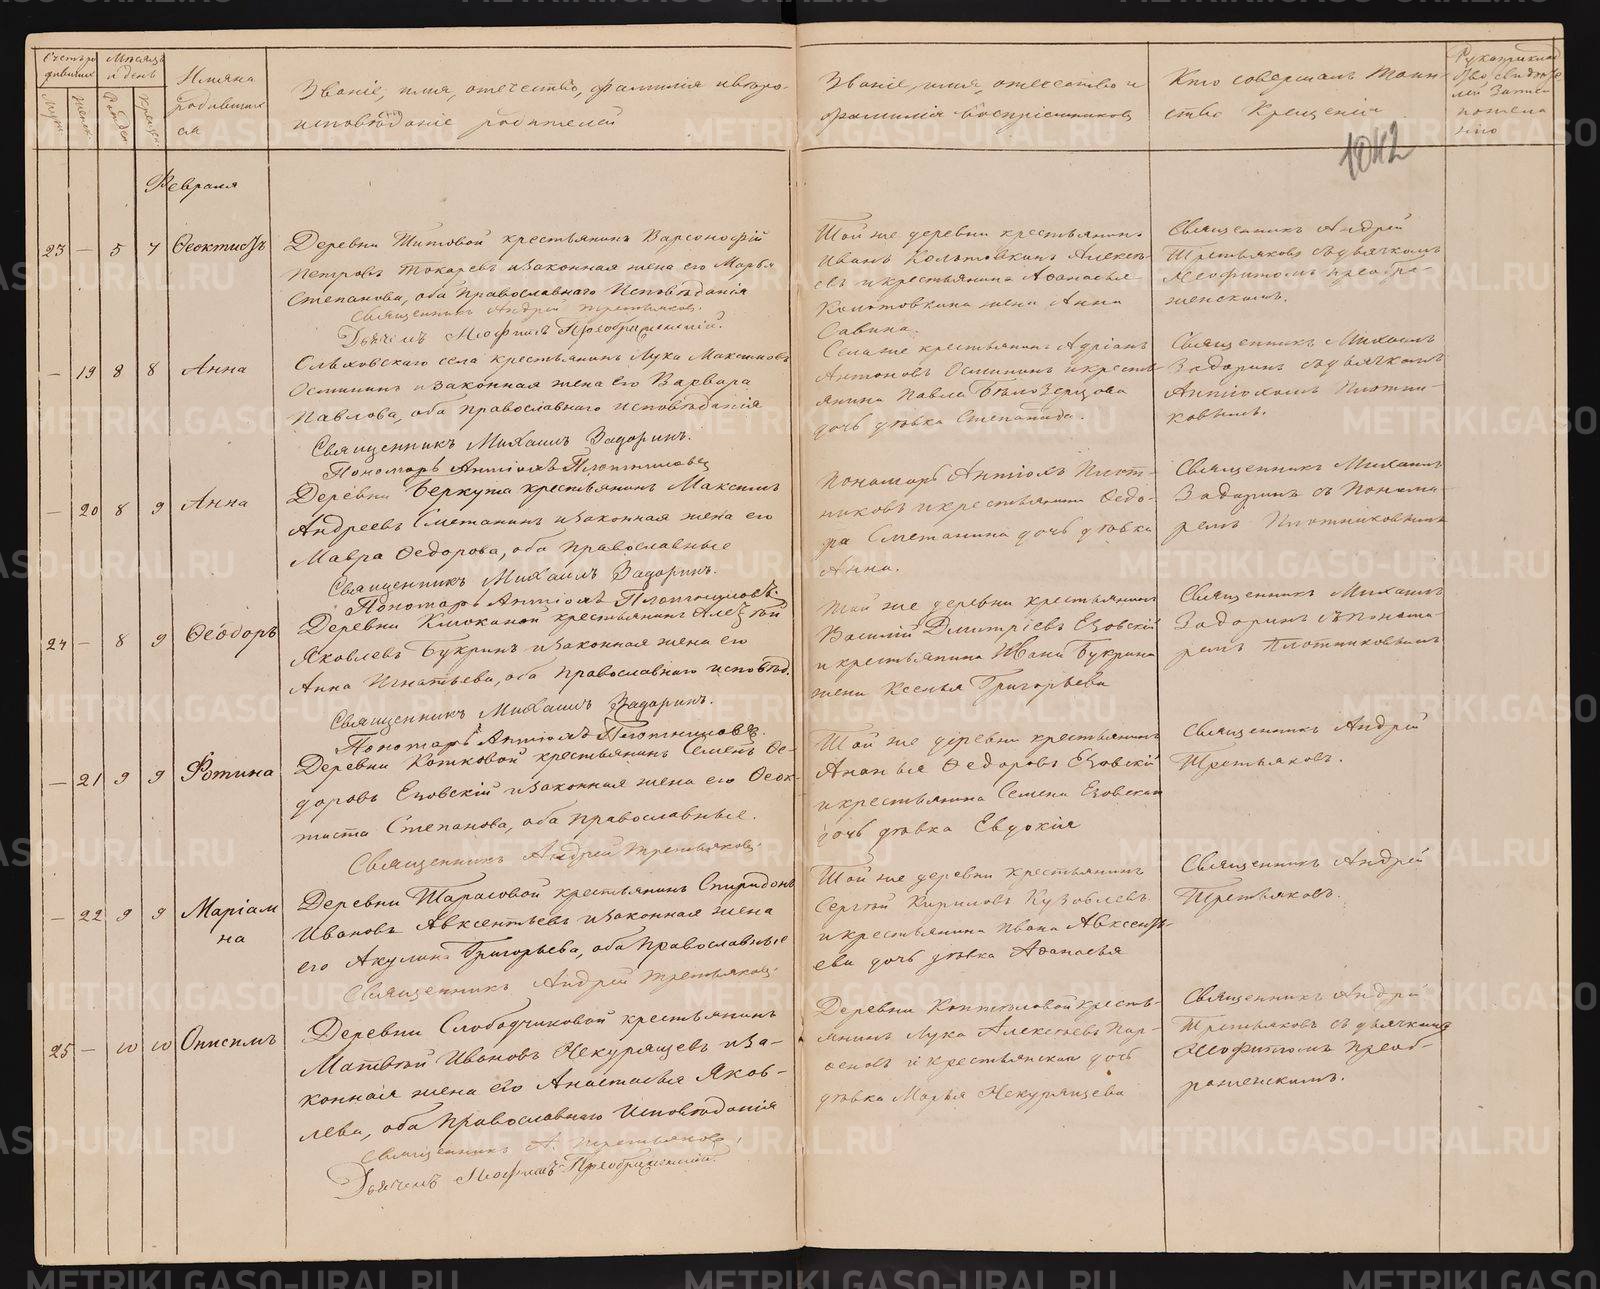 Счетъ ро
дившихся
Мѣсяцъ
и день
Имяна
родивших
ся
Званіе, имя, отечество, фамилія и вѣро-
исповѣданіе родителей
Званіе, имя, отечество и
фамилія воспріемниковъ
Кто совершалъ таин-
ство Крещенія
1042
Февраля
23 — 5 7 Ѳеоктистъ
Деревни Титовой крестьянинъ Варсонофій
Петровъ Токаревъ и законная жена его Марья
Степанова, оба православнаго исповѣданія
Священникъ Андрей Третьяковъ.
Дьячекъ Неофитъ Преображенскій.
Той же деревни крестьянинъ
Иванъ Колотовкинъ Алексѣ-
евъ и крестьянина Аѳанасья
Колотовкина жена Анна
Савина.
Священникъ Андрей
Третьяковъ съ дьячкомъ
Неофитомъ Преобра-
женскимъ.
— 19 8 8 Анна
села крестьянинъ Лука Максимовъ
Осининъ и законная жена его Варвара
Павлова, оба православнаго исповѣданія
Священникъ Михаилъ Задоринъ.
Пономарь Антіохъ Плотниковъ
Села же крестьянинъ Адріанъ
Антоновъ Осининъ и кресть-
янина Павла Бѣлозерцова
дочь дѣвка Степанида.
Священникъ Михаилъ
Задоринъ съ дьячкомъ
Антіохомъ Плотни-
ковымъ.
— 20 8 9 Анна
Деревни Беркута крестьянинъ Максимъ
Андреевъ Сметанинъ и законная жена его
Мавра Ѳедорова, оба православные
Священникъ Михаилъ Задоринъ.
Пономарь Антіохъ Плотниковъ
Пономарь Антіохъ Плот-
никовъ и крестьянина Ѳедо-
ра Сметанина дочь дѣвка
Анна.
Священникъ Михаилъ
Задоринъ съ понома-
ремъ Плотниковымъ
24 — 8 9 Ѳеодоръ
Деревни Клюкиной крестьянинъ Алексѣй
Яковлевъ Букринъ и законная жена его
Анна Игнатьева, оба православнаго исповѣд.
Священникъ Михаилъ Задоринъ.
Пономарь Антіохъ Плотниковъ.
Той же деревни крестьянинъ
Василій Дмитріевъ Езовскій
и крестьянина Ивана Букрина
жена Ксенья Григорьева
Священникъ Михаилъ
Задоринъ съ понома-
ремъ Плотниковымъ
— 21 9 9 Фотина
Деревни Котковой крестьянинъ Семенъ Ѳе-
доровъ Езовскій и законная жена его Ѳеок-
тиста Степанова, оба православные.
Священникъ Андрей Третьяковъ.
Той же деревни крестьянинъ
Ананья Ѳедоровъ Езовскій
и крестьянина Семена Езовскаго
дочь дѣвка Евдокія
Священникъ Андрей
Третьяковъ.
— 22 9 9 Маріам
на
Деревни Тарасовой крестьянинъ Спиридонъ
Ивановъ Авксентьевъ и законная жена
его Акулина Григорьева, оба православные
Священникъ Андрей Третьяковъ.
Той же деревни крестьянинъ
Сергѣй Кириловъ Кузовлевъ
и крестьянина Ивана Авксенть-
ева дочь дѣвка Аѳанасья
Священникъ Андрей
Третьяковъ.
25 — 10 10 Онисимъ
Деревни Слободчиковой крестьянинъ
Матвѣй Ивановъ Некурящевъ и за-
конная жена его Анастасья Яков-
лева, оба православнаго исповѣданія
Священникъ А. Третьяковъ,
Дьячекъ Неофитъ Преображенскій.
Деревни крестья-
нинъ Лука Алексѣевъ
и крестьянская дочь
дѣвка Марья Некурящева
Священникъ Андрей
Третьяковъ съ дьячкомъ
Неофитомъ Преоб-
раженскимъ.
METRIKI.GASO-URAL.RU